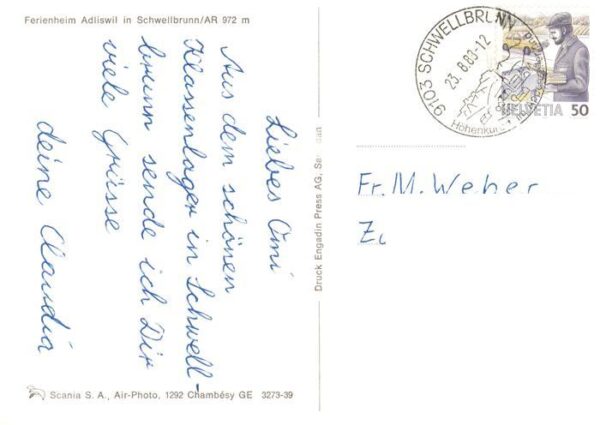 Ferienheim Adliswil in Schwellbrunn/AR 972 m
Liebes Omi
Aus dem schönen
Klassenlager in Schwell-
brunn sende ich Dir
viele Grüsse
deine Claudia
Scania S. A., Air-Photo, 1292 Chambésy GE 3273-39
Druck Engadin Press AG,
9103 SCHWELLBRUNN
23.8.89-12
HELVETIA 50
Fr. M. Weber